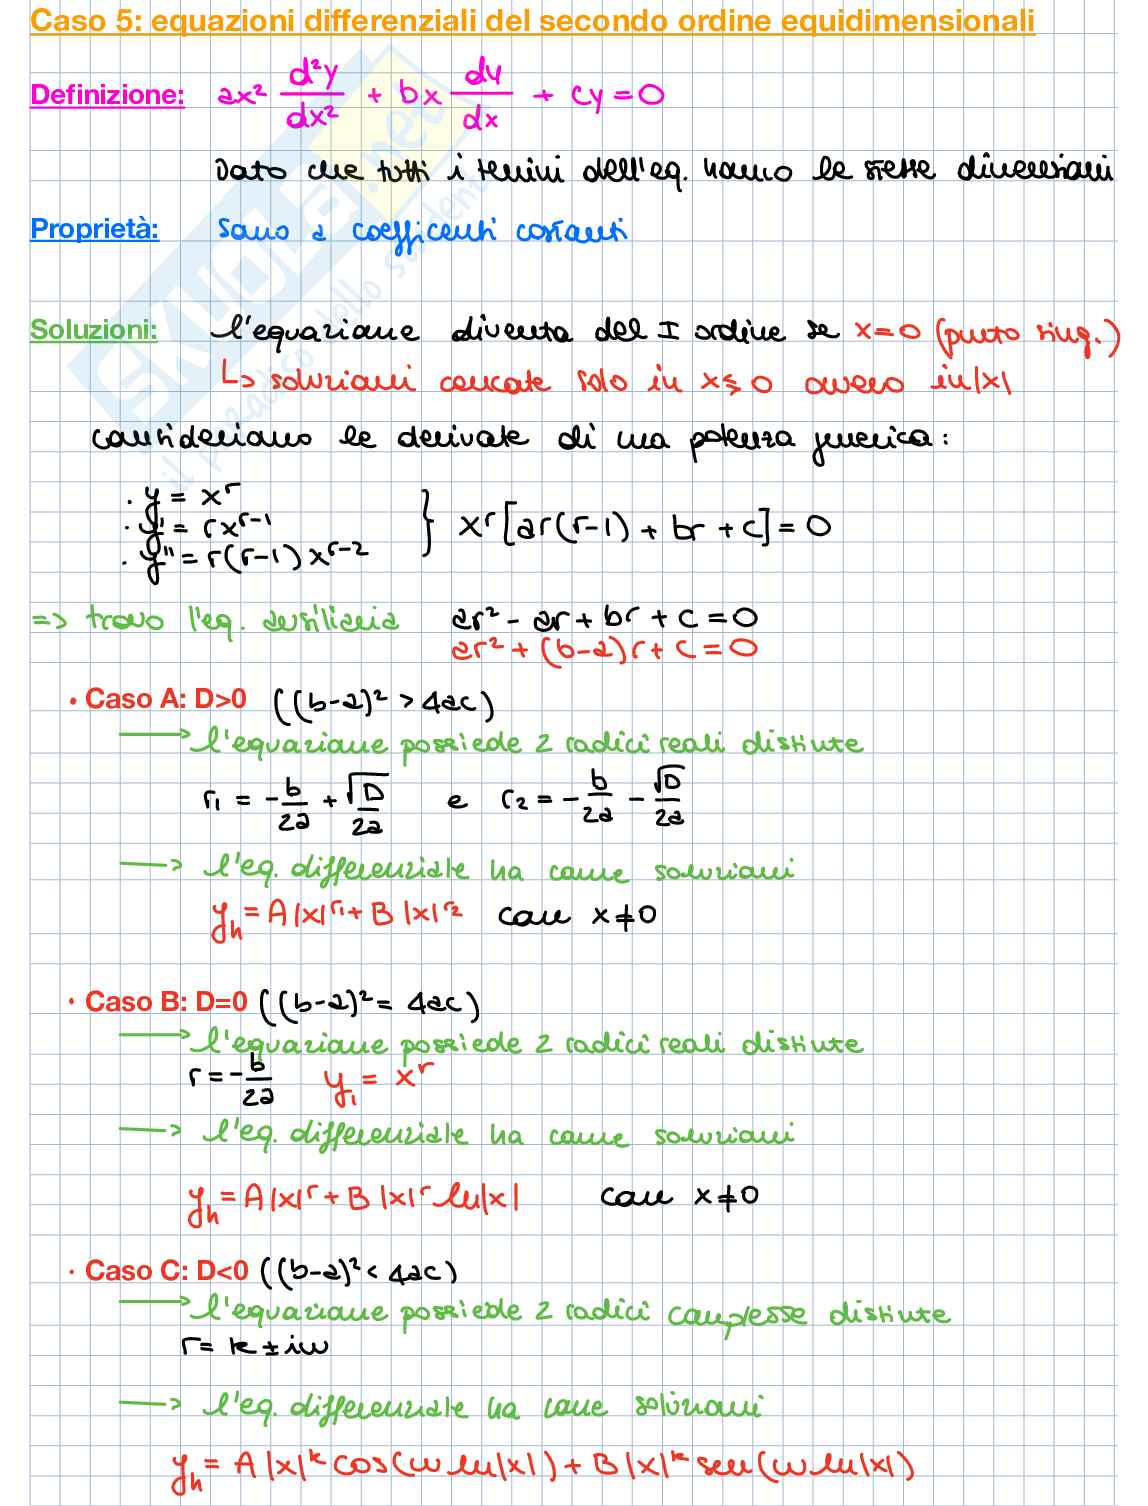 Caso 5: equazioni differenziali del secondo ordine equidimensionali
Definizione: ax² d²y/dx² + bx dy/dx + cy = 0
Dato che tutti i termini dell'eq. hanno le stesse dimensioni
Proprietà: Sono a coefficenti costanti
Soluzioni: l'equazione diventa del I ordine se x=0 (punto sing.)
↳ soluzioni cercate solo in x≶0 ovvero in |x|
consideriamo le derivate di una potenza generica:
· y = x^r
· y' = rx^(r-1) } x^r[ar(r-1) + br + c] = 0
· y'' = r(r-1)x^(r-2)
=> trovo l'eq. ausiliaria ar² - ar + br + c = 0
ar² + (b-a)r + c = 0
• Caso A: D>0 ((b-a)² > 4ac)
→ l'equazione possiede 2 radici reali distinte
r₁ = -b/2a + √D/2a e r₂ = -b/2a - √D/2a
→ l'eq. differenziale ha come soluzioni
y_h = A|x|^r₁ + B|x|^r₂ con x≠0
• Caso B: D=0 ((b-a)² = 4ac)
→ l'equazione possiede 2 radici reali distinte
r = -b/2a y₁ = x^r
→ l'eq. differenziale ha come soluzioni
y_h = A|x|^r + B|x|^r ln|x| con x≠0
• Caso C: D<0 ((b-a)² < 4ac)
→ l'equazione possiede 2 radici complesse distinte
r = k ± iω
→ l'eq. differenziale ha come soluzioni
y_h = A|x|^k cos(ω ln|x|) + B|x|^k sen(ω ln|x|)
SKUOLA.net